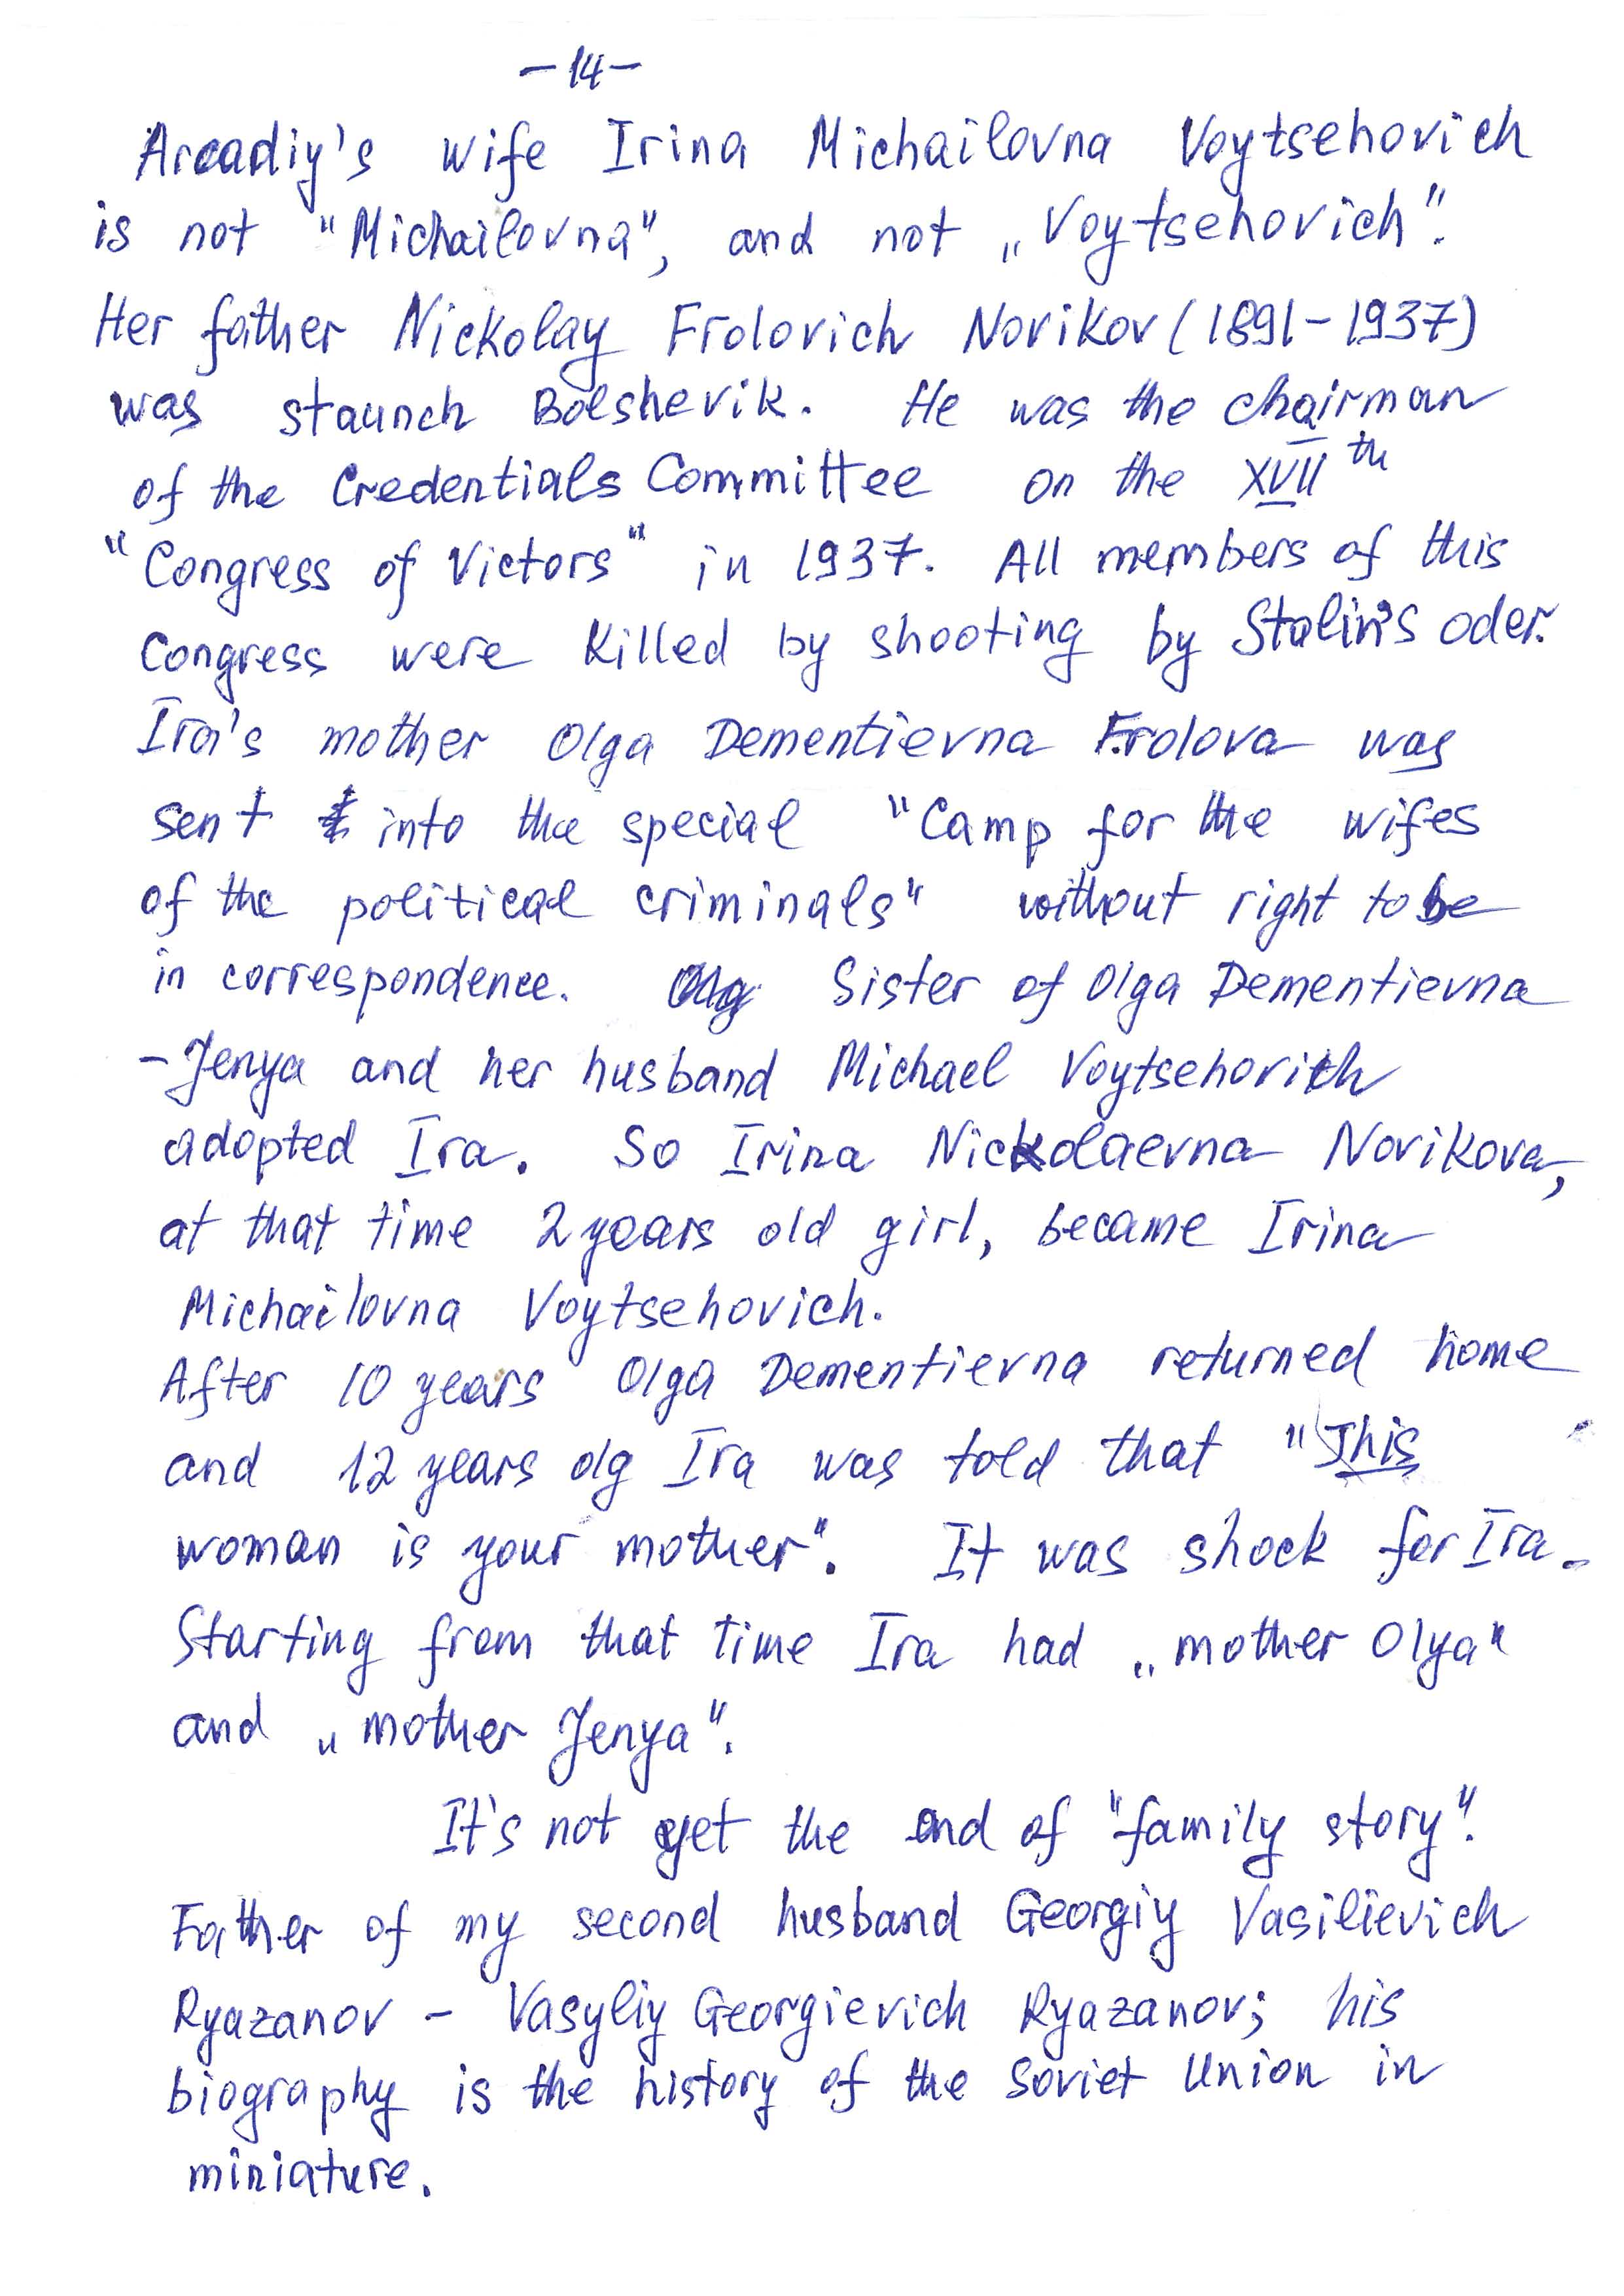 -14-
Arcadiy's wife Irina Michailovna Voytsehovich
is not "Michailovna", and not „Voytsehovich".
Her father Nickolay Frolovich Novikov (1891-1937)
was staunch Bolshevik. He was the chairman
of the Credentials Committee on the XVII th
"Congress of Victors" in 1937. All members of this
Congress were killed by shooting by Stalin's oder.
Ira's mother Olga Dementievna Frolova was
sent into the special "Camp for the wifes
of the political criminals" without right to be
in correspondence. Sister of Olga Dementievna
- Jenya and her husband Michael Voytsehovich
adopted Ira. So Irina Nickolaevna Novikova,
at that time 2 years old girl, became Irina
Michailovna Voytsehovich.
After 10 years Olga Dementievna returned home
and 12 years olg Ira was told that "This
woman is your mother". It was shock for Ira.
Starting from that time Ira had „mother Olya"
and „mother Jenya".
It's not yet the end of "family story".
Father of my second husband Georgiy Vasilievich
Ryazanov - Vasyliy Georgievich Ryazanov; his
biography is the history of the Soviet Union in
miniature.